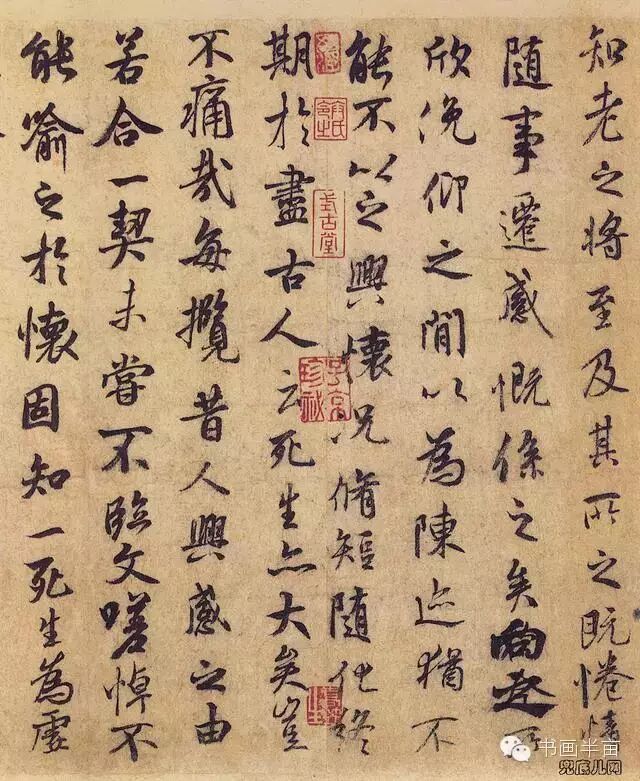 知老之將至及其所之既惓情
随事遷感慨係之矣向之所
欣俛仰之閒以為陳迹猶不
能不以之興懷況脩短随化終
期於盡古人云死生亦大矣豈
不痛哉每攬昔人興感之由
若合一契未嘗不臨文嗟悼不
能喻之於懷固知一死生為虛
式古堂
书画半亩
兜底儿网